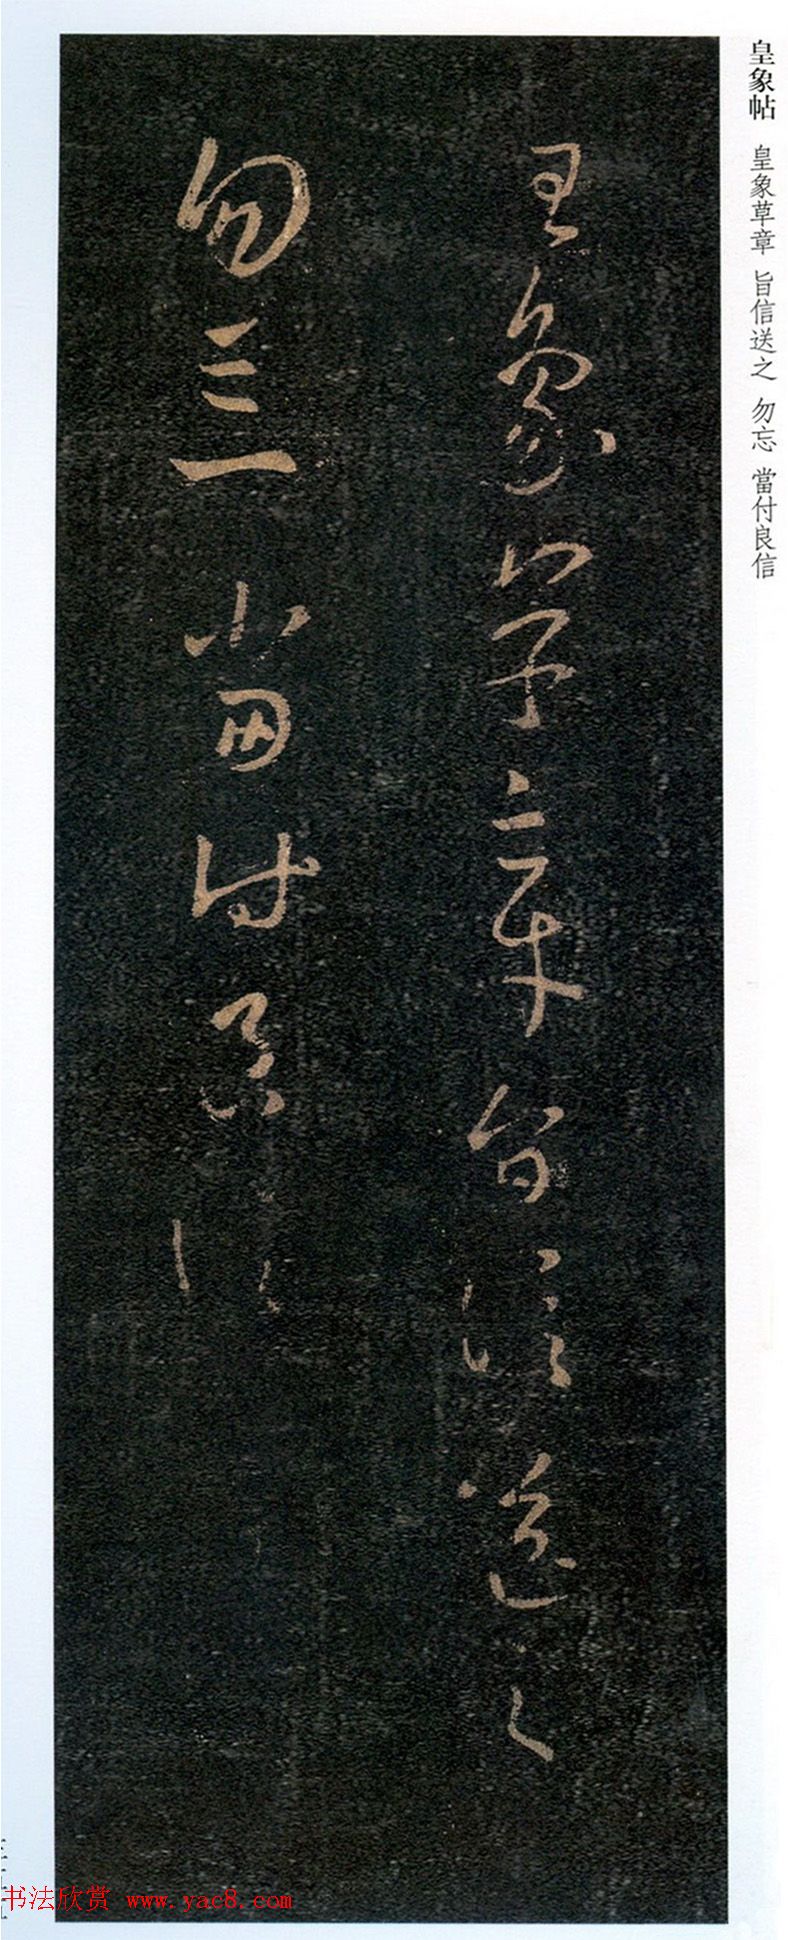 皇象帖 皇象草章 旨信送之 勿忘 當付良信
皇象草章旨信送之
勿三一當付良信
书法欣赏 www.yac8.com